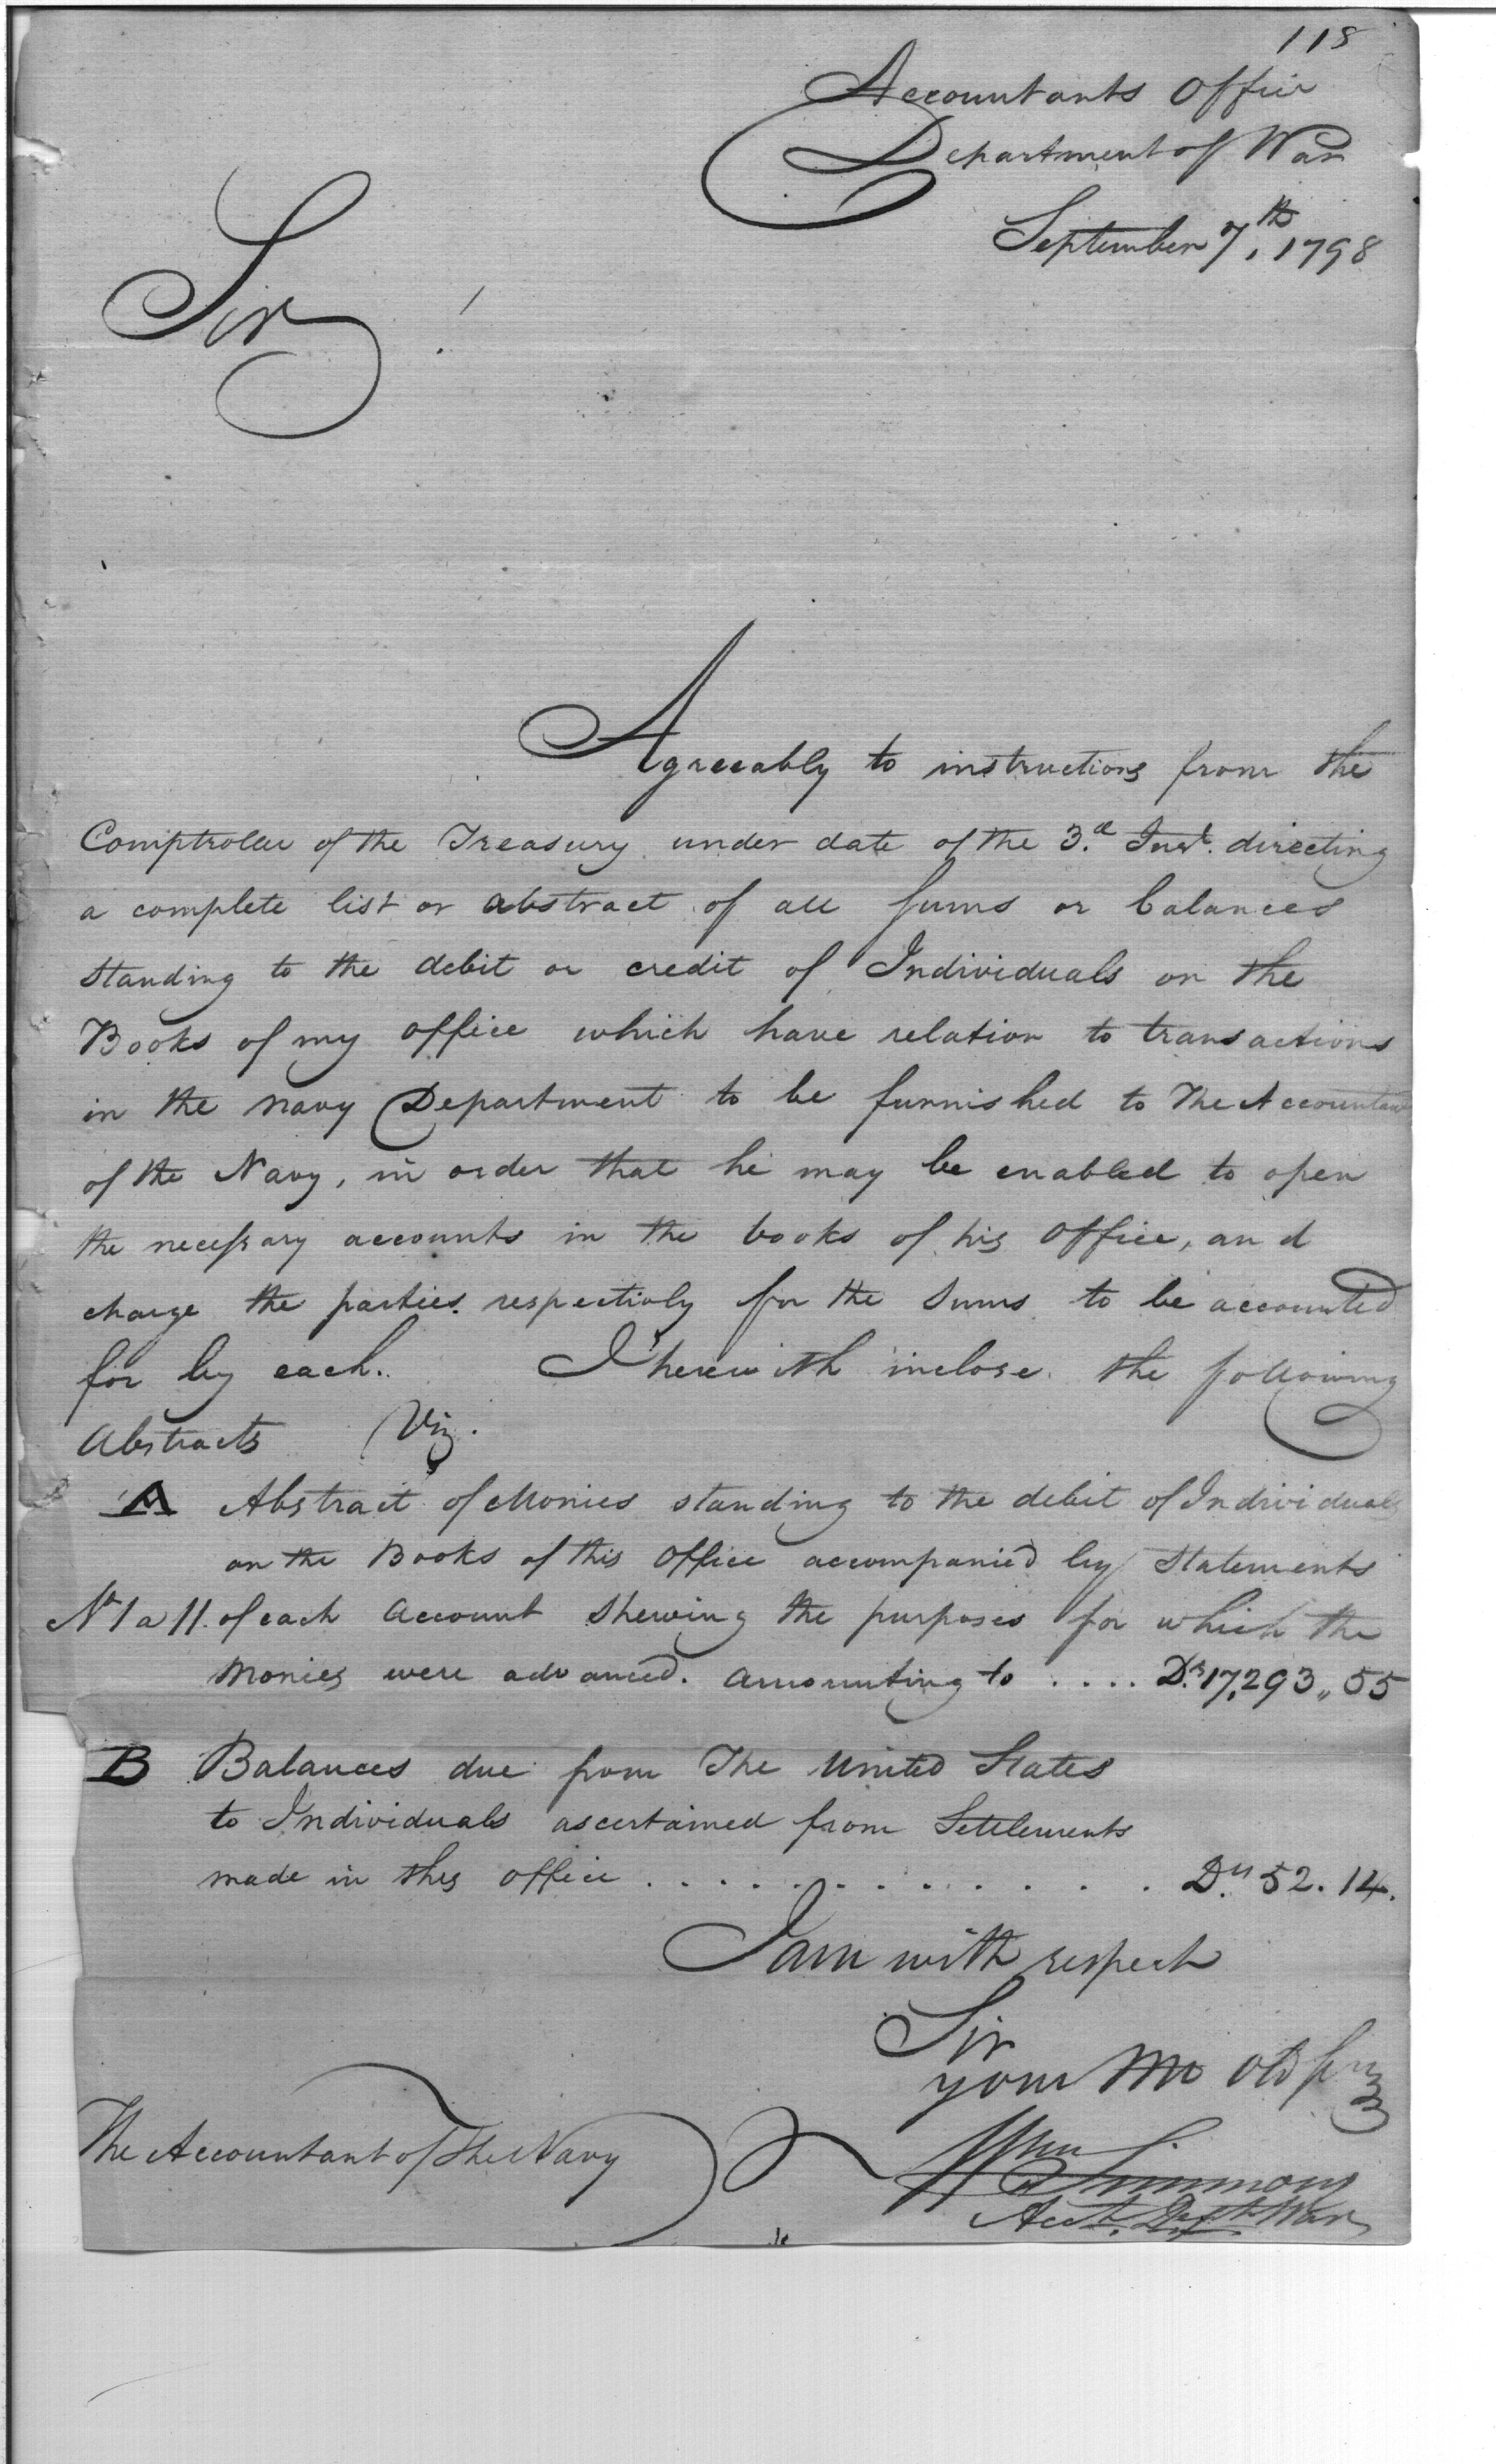 118
Accountants Office
Department of War
September 7th, 1798
Sir
Agreeably to instructions from the
Comptroller of the Treasury under date of the 3.d Inst. directing
a complete list or abstract of all sums or balances
standing to the debit or credit of Individuals on the
Books of my office which have relation to transactions
in the navy Department to be furnished to The Accountant
of the Navy, in order that he may be enabled to open
the necessary accounts in the books of his Office, and
charge the parties respectivly for the sums to be accounted
for by each. I herewith inclose the following
Abstracts Viz.
A Abstract of Monies standing to the debit of Individuals
on the Books of this Office accompanied by statements
No 1 a 11. of each account shewing the purposes for which the
monies were advanced. amounting to .... Drs 17,293,,55
B Balances due from The United States
to Individuals ascertained from Settlements
made in this office . . . . . . . . . . . . . Drs 52.14.
I am with respect
Sir
your Mo Obd Serv
The Accountant of the Navy
Wm Simmons
Acct. Dept War